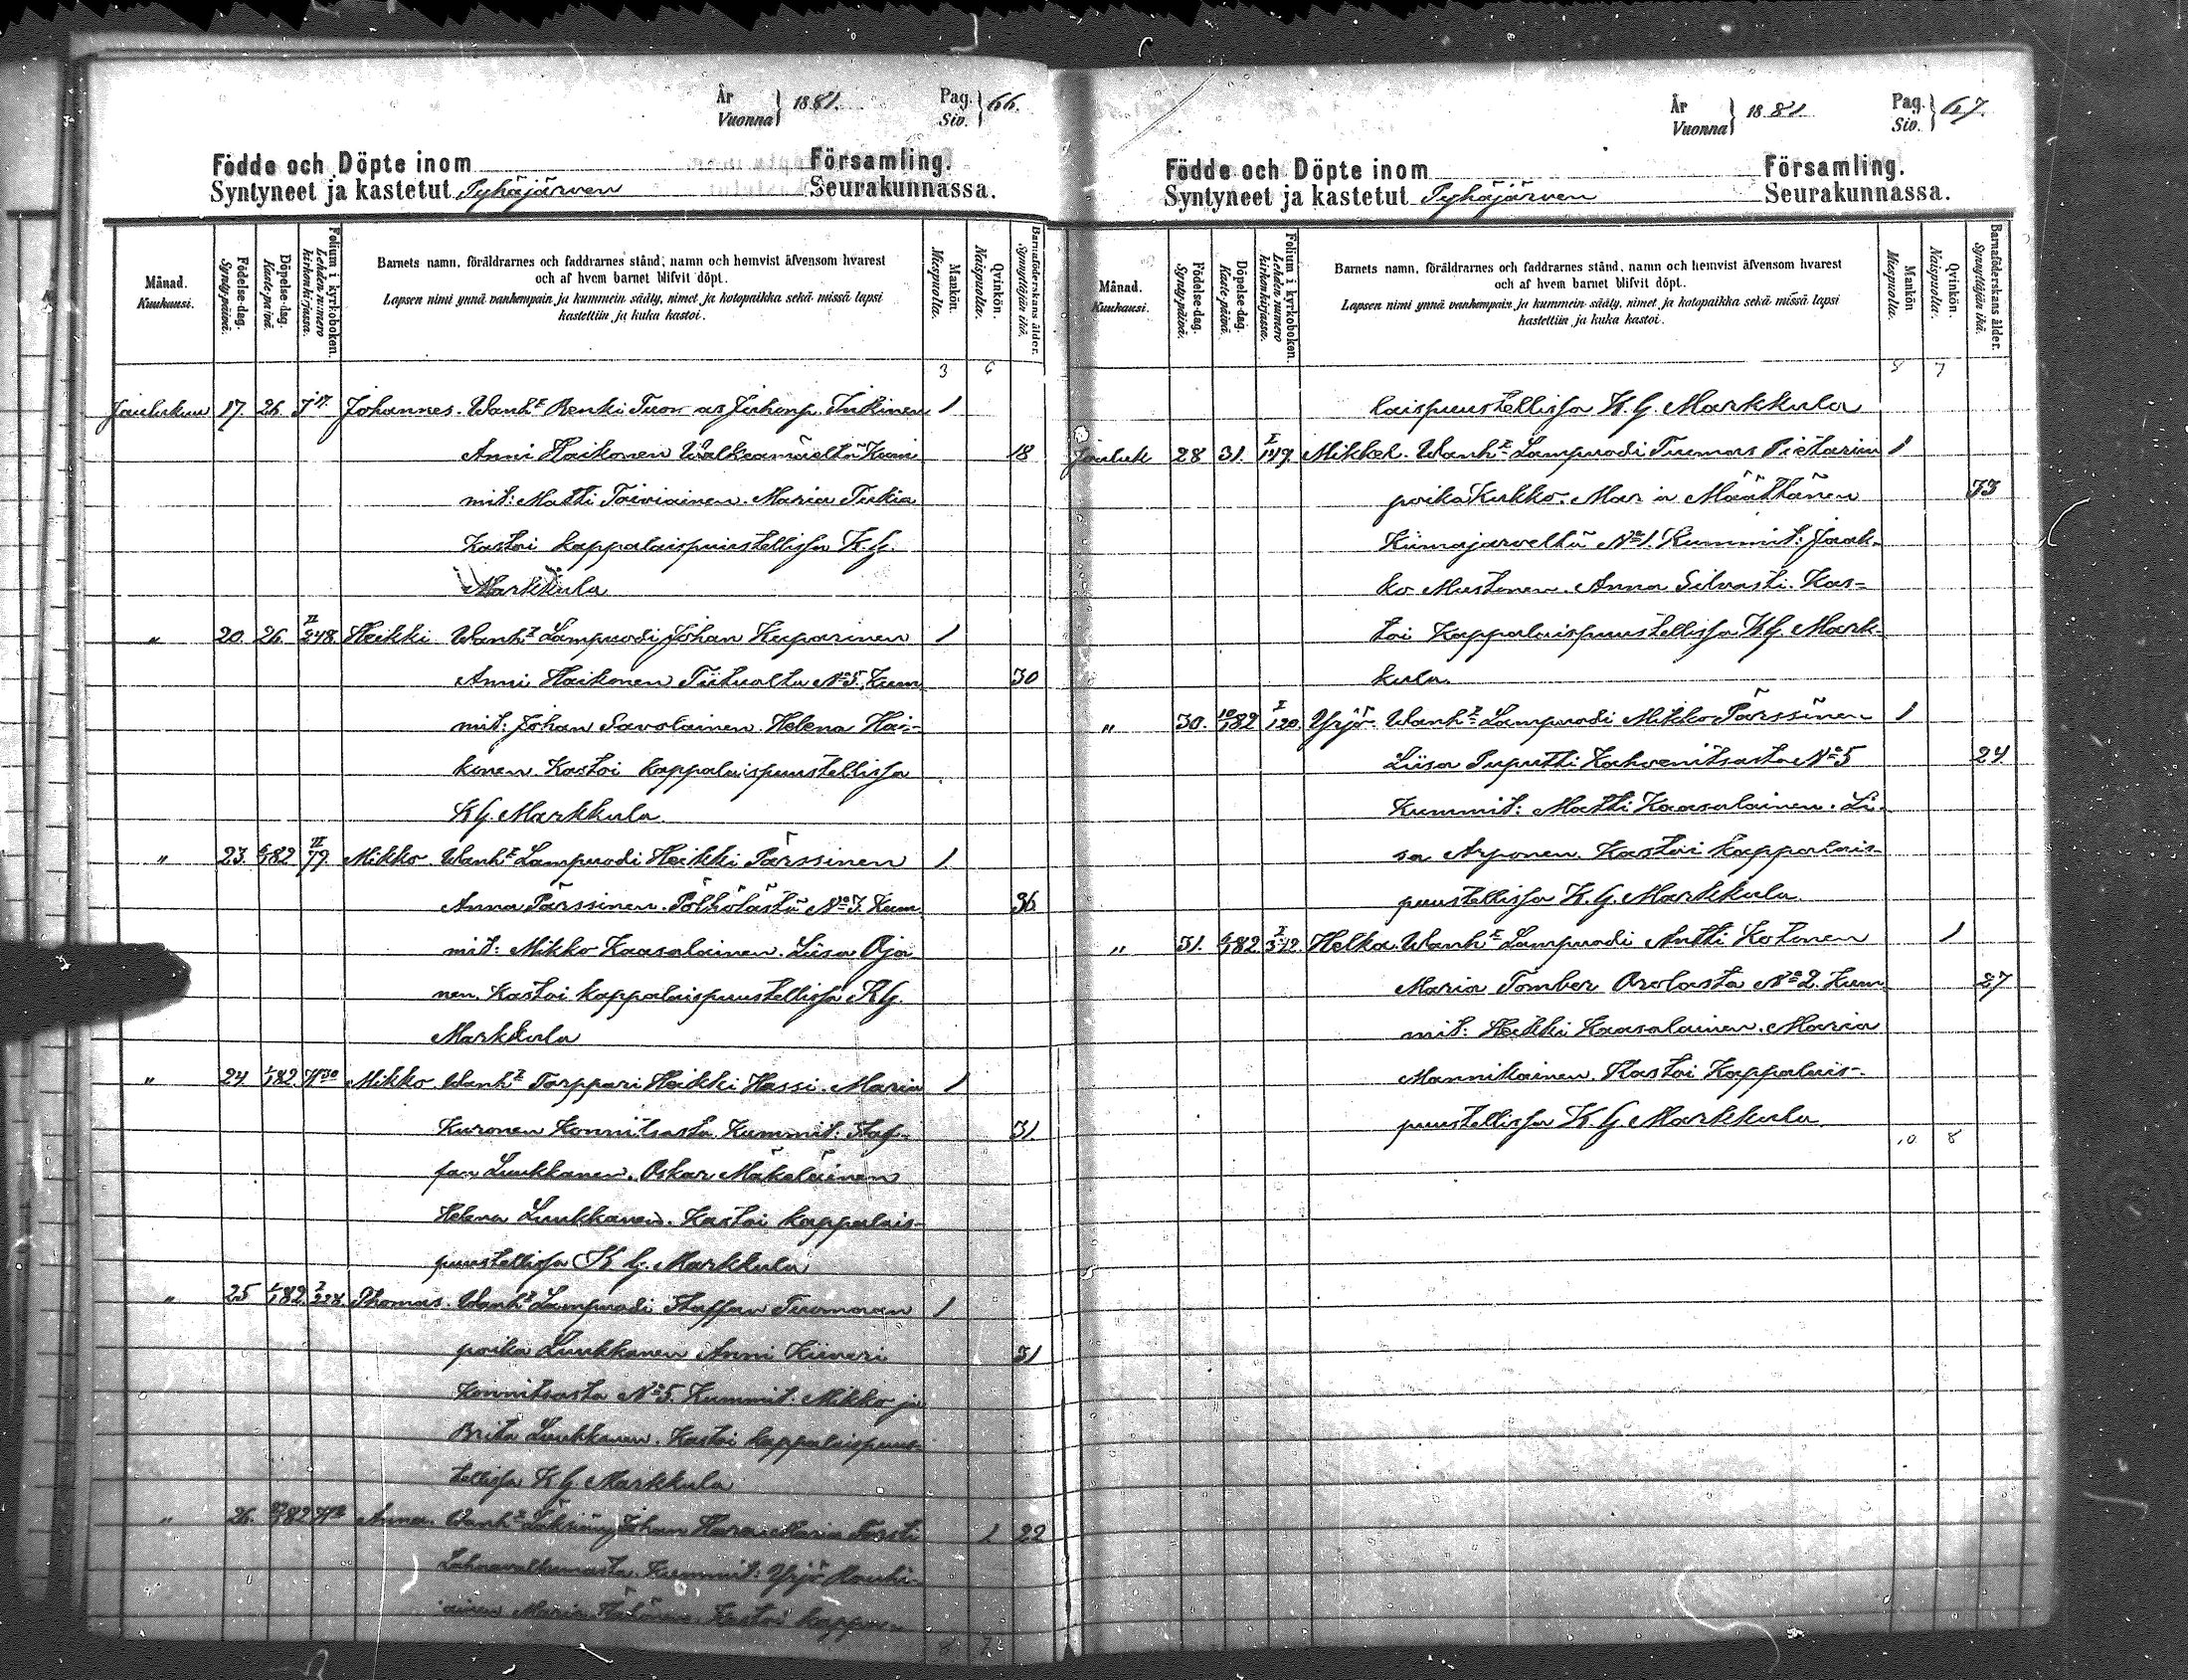 År
Vuonna } 1881. Pag.
Siv. } 66.
Födde och Döpte inom Församling.
Syntyneet ja kastetut Pyhäjärven Seurakunnassa.
Månad.
Kuukausi.
Födelse-dag.
Synty-päivä.
Döpelse-dag.
Kaste-päivä.
Folium i kyrkoboken.
Lehden numero kirkonkirjassa.
Barnets namn, föräldrarnes och faddrarnes stånd, namn och hemvist äfvensom hvarest
och af hvem barnet blifvit döpt.
Lapsen nimi ynnä vanhempain ja kummein sääty, nimet ja kotopaikka sekä missä lapsi
kastettiin ja kuka kastoi.
Mankön.
Miespuolia.
Qvinkön.
Naispuolia.
Barnaföderskans ålder.
Synnyttäjän ikä.
3 6
Joulukuu 17. 26. Johannes. Wanht Renki 1
Anni Haikonen Walkeamäeltä Kum 18
mit: Matti Toiviainen. Maria Tukia
Kastoi kappalaispuustellissa K. G.
Markkula
" 20. 26. II 248. Heikki Wanht Lampuodi Johan Kuparinen 1
Anni Haikonen Tiitualta No 5. Kum 30
mit: Johan Savolainen. Helena Hai-
konen. Kastoi kappalaispuustellissa
K G. Markkula.
" 23. 6/1 82 II 79. Mikko Wanht Lampuodi Heikki Pärssinen 1.
Anna Pärssinen. Pölhölästä No 3. Kum 36
mit: Mikko Kaasalainen. Liisa Oja
nen. Kastoi kappalaispuustellissa K G.
Markkula
" 24 1/1 82 Mikko Wanht Torppari Heikki Hassi. Maria 1
Kuronen Konnitsasta Kummit: Staf-
fan Luukkanen. Oskar Mäkeläinen 31
Helena Luukkanen. Kastoi kappalais-
puustellissa K G. Markkula
" 25 1/1 82. I 228. Thomas. Wanht Lampuodi Staffan Tuomaan 1
poika Luukkanen Anni Kiiveri 31
Konnitsasta No 5. Kummit: Mikko ja
Brita Luukkanen. Kastoi kappalaispuus-
tellissa K G. Markkula
" 26. Anna. Wanht Johan Maria Torsti 1 22
Kummit: Yrjö
ainen Maria Kastoi kappa-
8 7
År
Vuonna } 1881. Pag.
Siv. } 67.
Födde och Döpte inom Församling.
Syntyneet ja kastetut Pyhäjärven Seurakunnassa.
Månad.
Kuukausi.
Födelse-dag.
Synty-päivä.
Döpelse-dag.
Kaste-päivä.
Folium i kyrkoboken.
Lehden numero kirkonkirjassa.
Barnets namn, föräldrarnes och faddrarnes stånd, namn och hemvist äfvensom hvarest
och af hvem barnet blifvit döpt.
Lapsen nimi ynnä vanhempain ja kummein sääty, nimet ja kotopaikka sekä missä lapsi
kastettiin ja kuka kastoi.
Mankön
Miespuolia.
Qvinkön.
Naispuolia.
Barnaföderskans ålder.
Synnyttäjän ikä.
8 7
laispuustellissa K. G. Markkula
Jouluk 28 31. I 147. Mikkel. Wanht Lampuodi Tuomas Pietarin 1
poika Kukko. Maria Määttänen 33
Kiimajärveltä No 1. Kummit: Jaak-
ko Mustonen. Anna Silvasti. Kas-
toi Kappalaispuustellissa K G. Mark-
kula.
" 30. 10/1 82 I 120. Yrjö Wanht Lampuodi Mikko Pärssinen 1
Liisa Puputti Kahvenitsasta No 5 24
Kummit: Matti Kaasalainen. Lii-
sa Arponen. Kastoi kappalais-
puustellissa K. G. Markkula.
" 31. 6/1 82 I 312. Helka. Wanht Lampuodi Antti Kotonen 1
Maria Tomber Orolasta No 2. Kum 27
mit: Heikki Kaasalainen. Maria
Mannikainen. Kastoi Kappalais-
puustellissa K G Markkula.
10 8